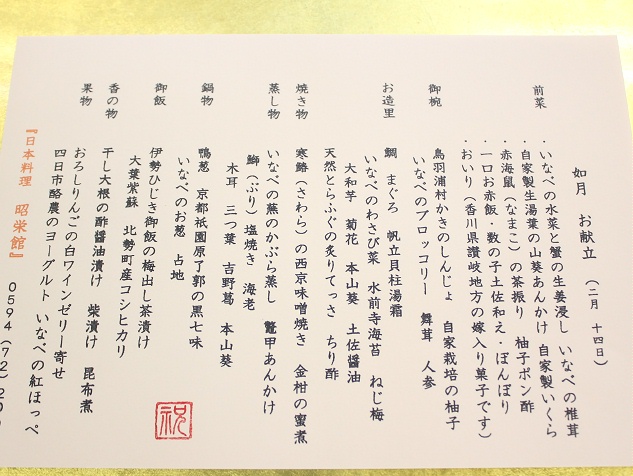 如月 お献立 (二月 十四日)
前菜 ・いなべの水菜と蟹の生姜浸し いなべの椎茸
・自家製生湯葉の山葵あんかけ 自家製いくら
・赤海鼠(なまこ)の茶振り 柚子ポン酢
・一口お赤飯・数の子土佐和え・ぼんぼり
・おいり(香川県讃岐地方の嫁入り菓子です)
御椀 鳥羽浦村かきのしんじょ 自家栽培の柚子
いなべのブロッコリー 舞茸 人参
お造里 鯛 まぐろ 帆立貝柱湯霜
いなべのわさび菜 水前寺海苔 ねじ梅
大和芋 菊花 本山葵 土佐醤油
天然とらふぐの炙りてっさ ちり酢
焼き物 寒鰆(さわら)の西京味噌焼き 金柑の蜜煮
蒸し物 いなべの蕪のかぶら蒸し 鼈甲あんかけ
鰤(ぶり)塩焼き 海老
木耳 三つ葉 吉野葛 本山葵
鍋物 鴨葱 京都祇園原了郭の黒七味
いなべのお葱 占地
御飯 伊勢ひじき御飯の梅出し茶漬け
大葉紫蘇 北勢町産コシヒカリ
香の物 干し大根の酢醤油漬け 柴漬け 昆布煮
果物 おろしりんごの白ワインゼリー寄せ
四日市酪農のヨーグルト いなべの紅ほっぺ
『日本料理 昭栄館』
0594(72)20
祝